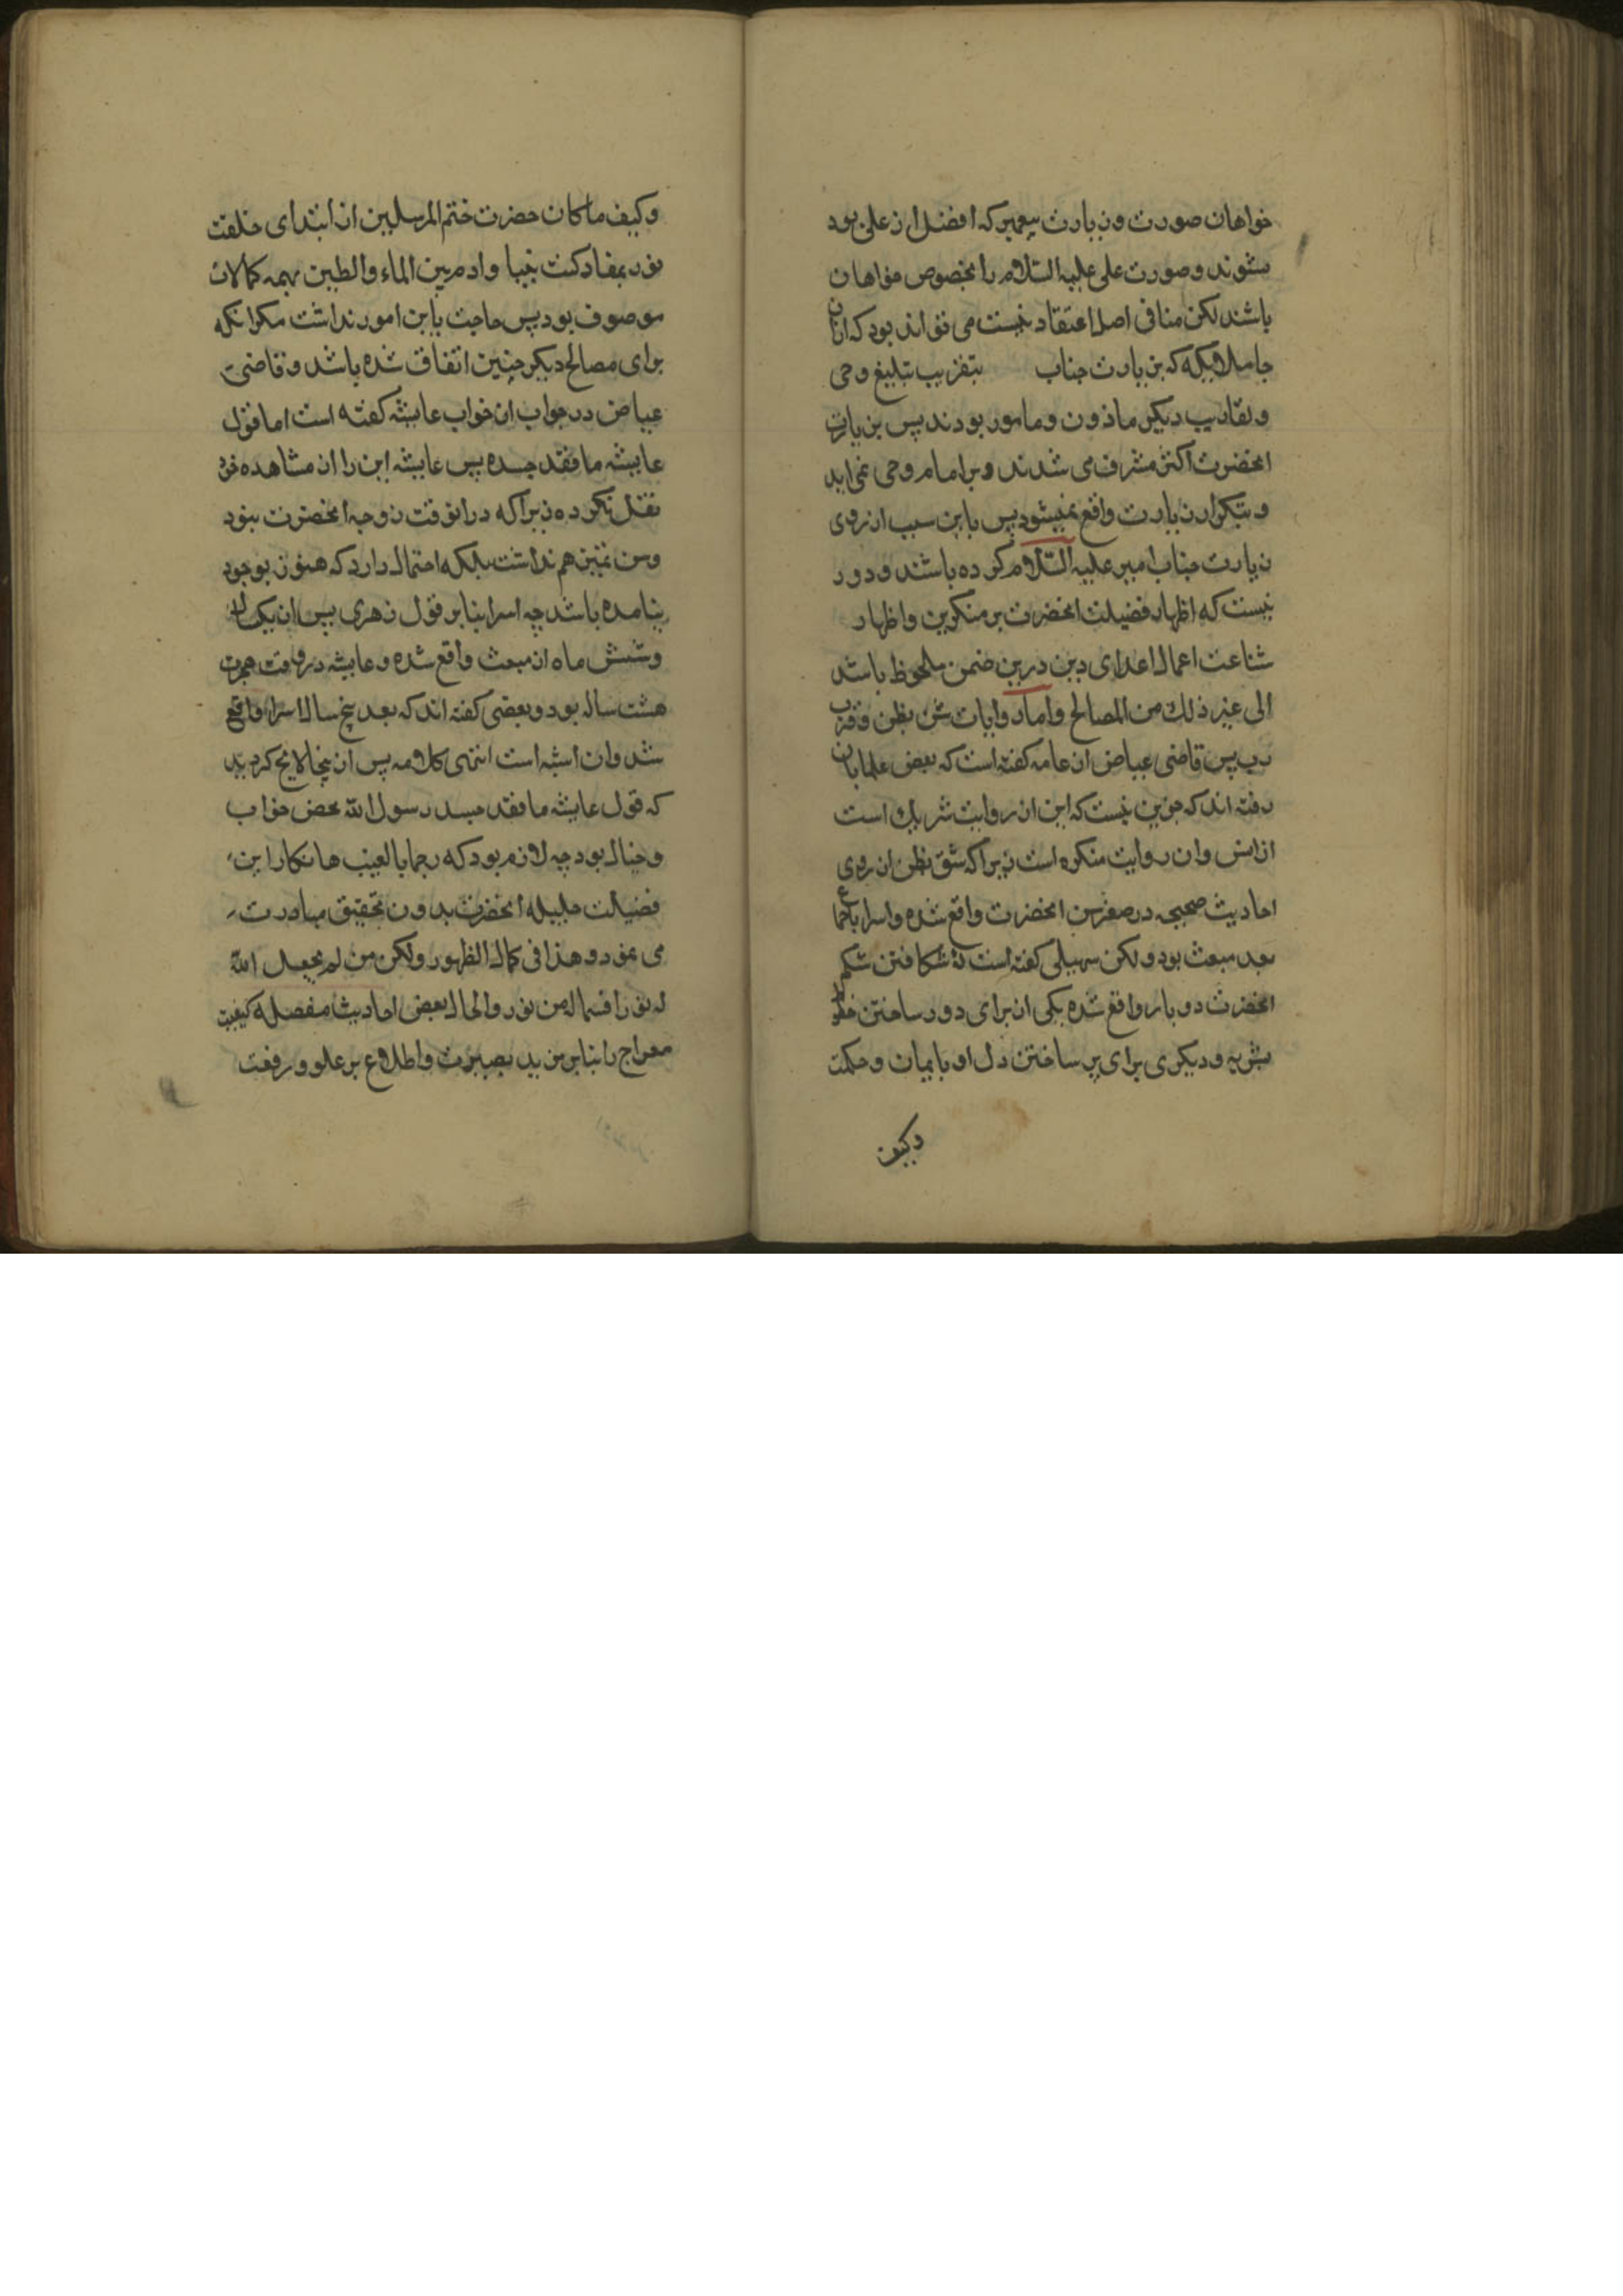 خواهان صورت و زیارت پیغمبر که افضل از علی بود
بشوند و صورت علی علیه السلام را بخصوص خواهان
باشند لکن منافی اصل اعتقاد نیست می تواند بود که ازان
جا ملائکه که بزیارت جناب بتقریب تبلیغ وحی
و تقاریب دیگر ماذون و مامور بودند پس بزیارت
انحضرت اکثر مشرف می شدند و بر امام وحی نمی اید
و بتکرار زیارت واقع نمیشود پس باین سبب ارزوی
زیارت جناب امیر علیه السلام کرده باشند و دور
نیست که اظهار فضیلت انحضرت بر منکرین و اظهار
شناعت اعمال اعدای دین درین ضمن ملحوظ باشد
الی غیر ذلک من المصالح و اما روایات شق بطن و قرب
رب پس قاضی عیاض از عامه کفته است که بعض علما بان
رفته اند که جزین نیست که این از روایت شریک است
از انس و ان روایت منکره است زیراکه شق بطن از روی
احادیث صحیحه در صغر سن انحضرت واقع شده و اسرا باجماع
بعد مبعث بود و لکن سهیلی کفته است که شکافتن شکم
انحضرت دو بار واقع شده یکی از برای دور ساختن
بشریه و دیکری برای پر ساختن دل او بایمان و حکمت
وکیف
وکیف ما کان حضرت ختم المرسلین از ابتدای خلقت
نور بمفاد کنت نبیا و ادم بین الماء والطین بهمه کمالات
موصوف بود پس حاجت باین امور نداشت مکر انکه
برای مصالح دیکر چنین اتفاق شده باشد و قاضی
عیاض در جواب ان خواب عایشه کفته است اما قول
عایشه ما فقد جسده پس عایشه این را از مشاهده خود
نقل نکرده زیراکه در انوقت زوجه انحضرت نبود
و سن تمیز هم نداشت بلکه احتمال دارد که هنوز بوجود
نیامده باشد چه اسرا بنابر قول زهری پس از یکسال
و شش ماه از مبعث واقع شده و عایشه در وقت هجرت
هشت ساله بود و بعضی کفته اند که بعد پنج سال اسرا واقع
شد و ان اشبه است انتهی کلامه پس از ینجا لایح کردید
که قول عایشه ما فقد جسد رسول الله محض خواب
و خیال بود چه لازم بود که رجما بالغیب ها نکار این
فضیلت جلیله انحضرت بدون تحقیق مبادرت
می نمود و هذا فی کمال الظهور و لکن من لم یجعل الله
له نورا فما له من نور و الحال بعض احادیث مفصله کیفیت
معراج را بنابر مزید بصیرت و اطلاع بر علو و رفعت